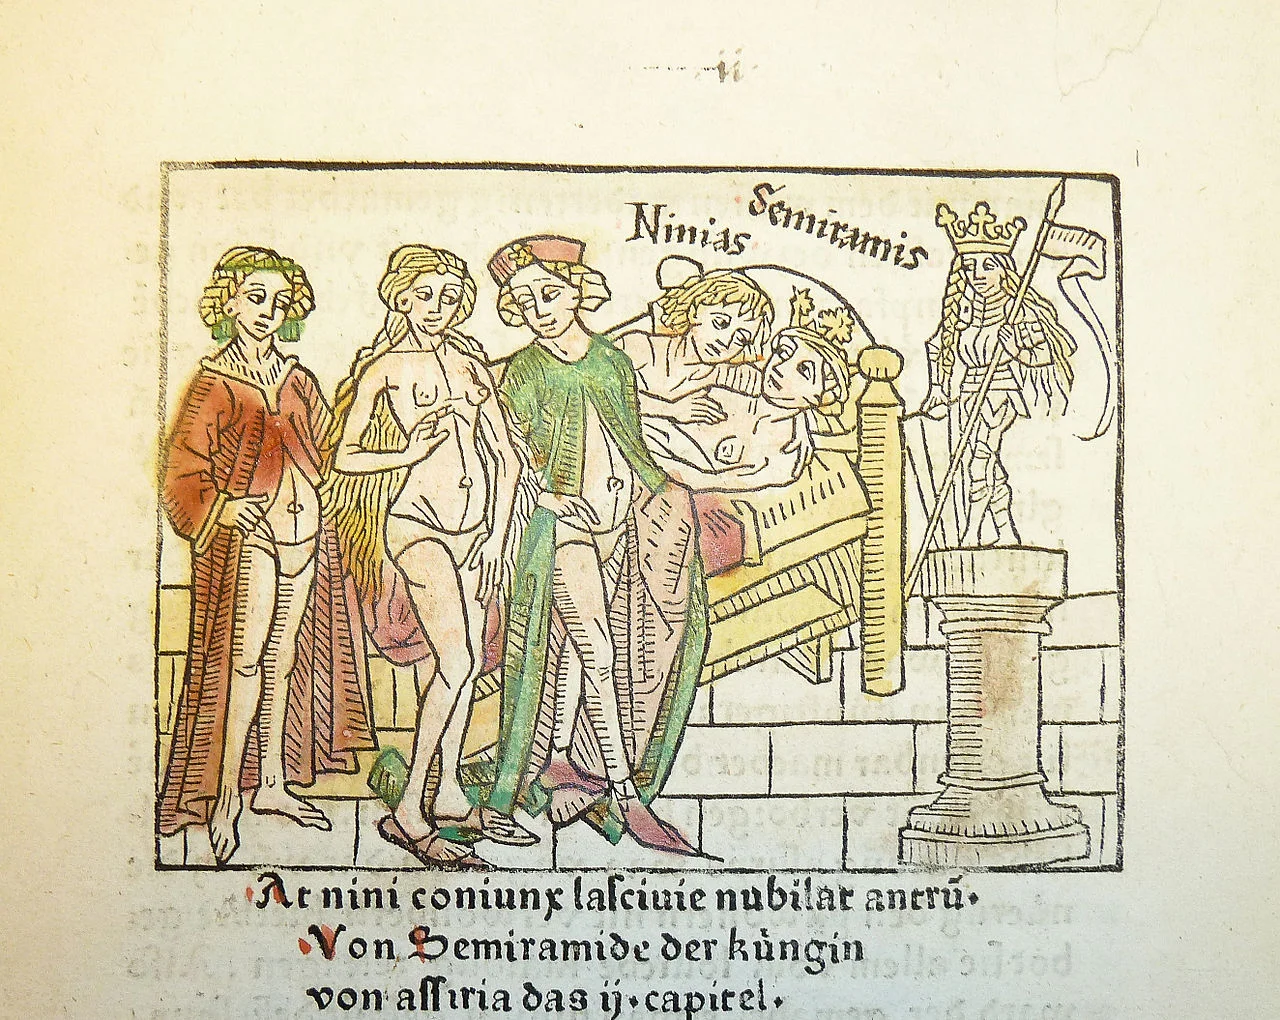 ii
Ninias Semiramis
At nini coniunx lasciuie nubilat antrū.
Von Semiramide der ku̍ngin
von assiria das ij. capitel.